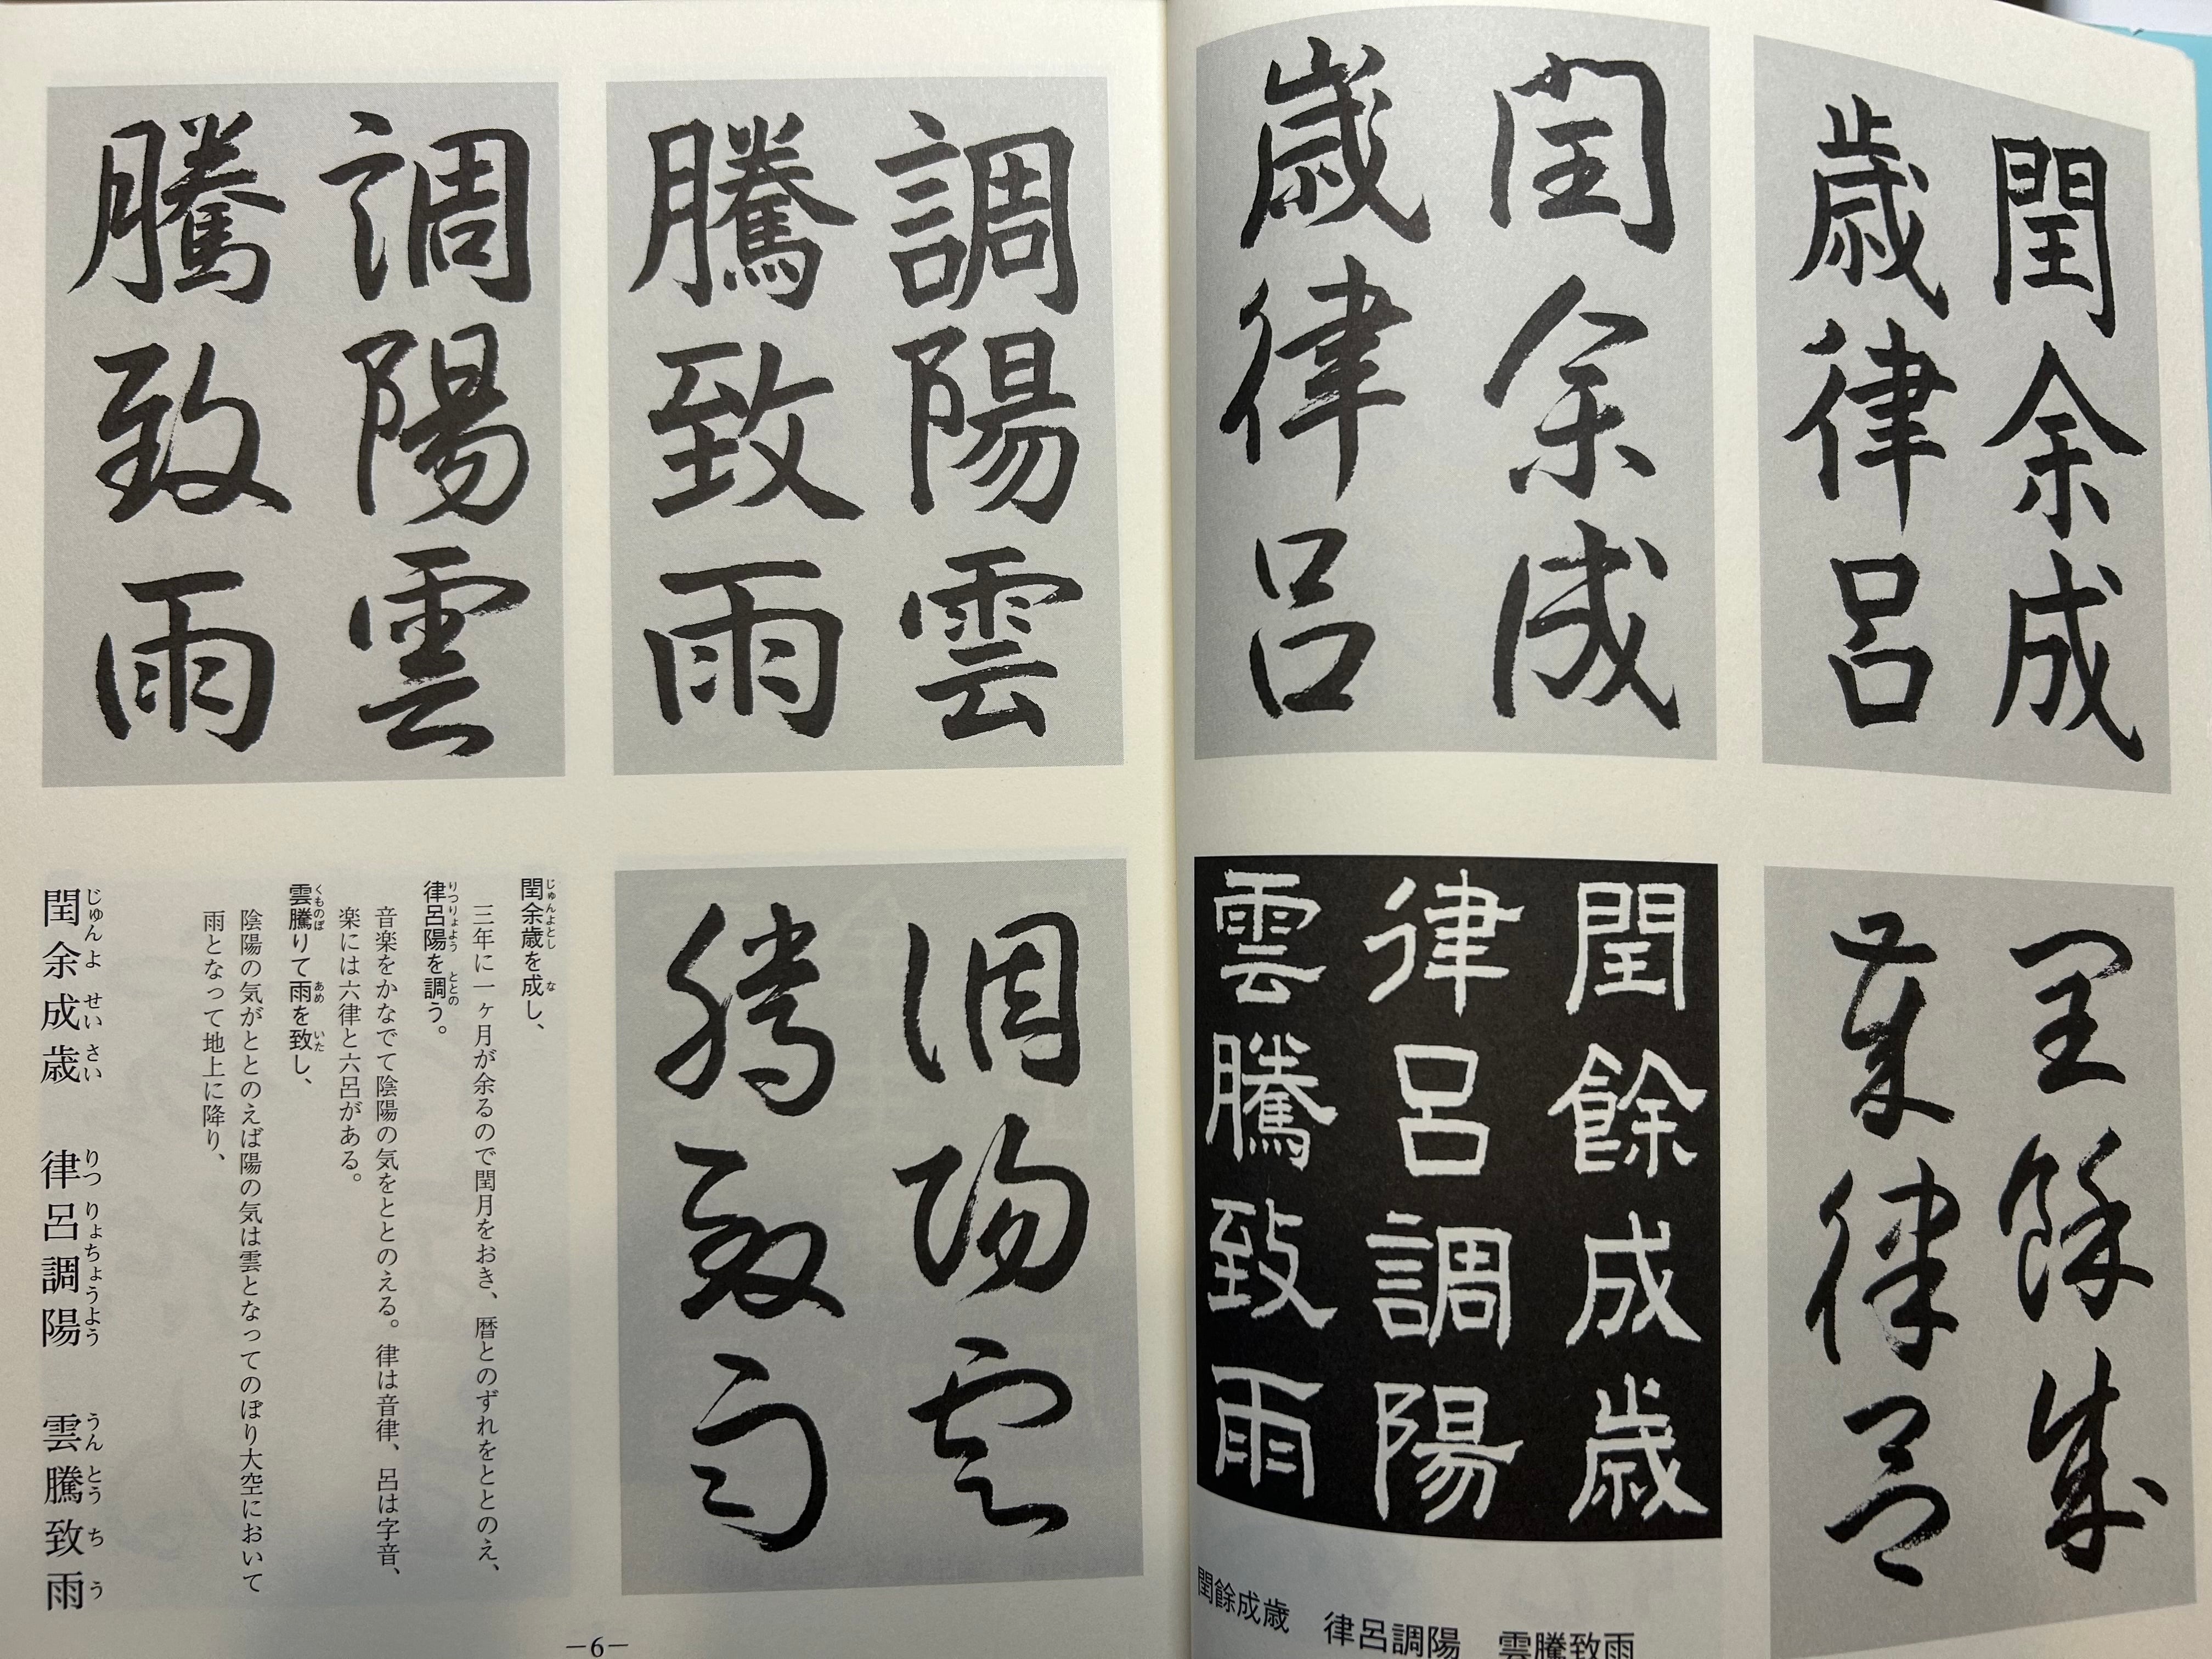 閏余成
歳律呂
閏余成
歳律呂
閏餘成
歳律呂
閏餘成歳
律呂調陽
雲騰致雨
閏餘成歳　律呂調陽　雲騰致雨
調陽雲
騰致雨
調陽雲
騰致雨
調陽雲
騰致雨
閏余歳を成し、
じゅんよとし　な
三年に一ヶ月が余るので閏月をおき、暦とのずれをととのえ、
律呂陽を調う。
りつりょよう　ととの
音楽をかなでて陰陽の気をととのえる。律は音律、呂は字音、
楽には六律と六呂がある。
雲騰りて雨を致し、
くものぼ　あめ　いた
陰陽の気がととのえば陽の気は雲となってのぼり大空において
雨となって地上に降り、
閏余成歳　律呂調陽　雲騰致雨
じゅんよせいさい　りつりょちょうよう　うんとうちう
—6—